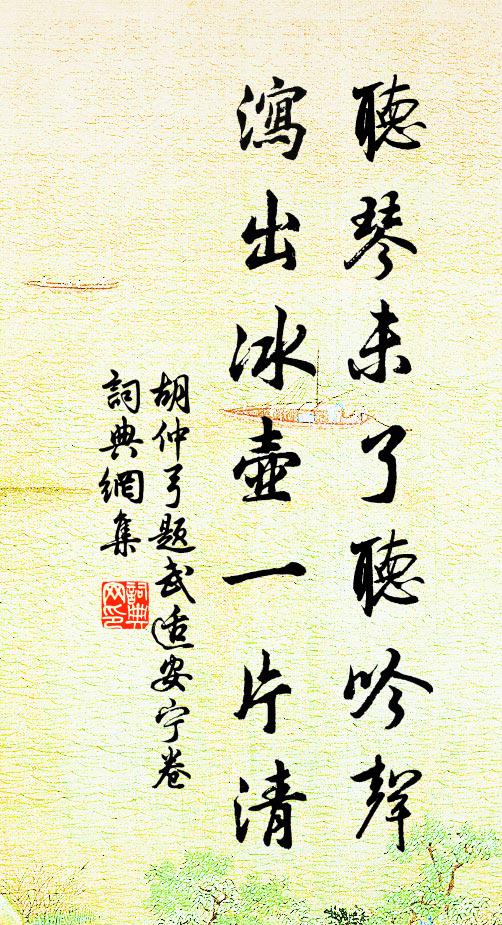 聽琴未了聽吟聲
瀉出冰壺一片清
胡仲弓題武适安宁卷
詞典網集
詞典
网印